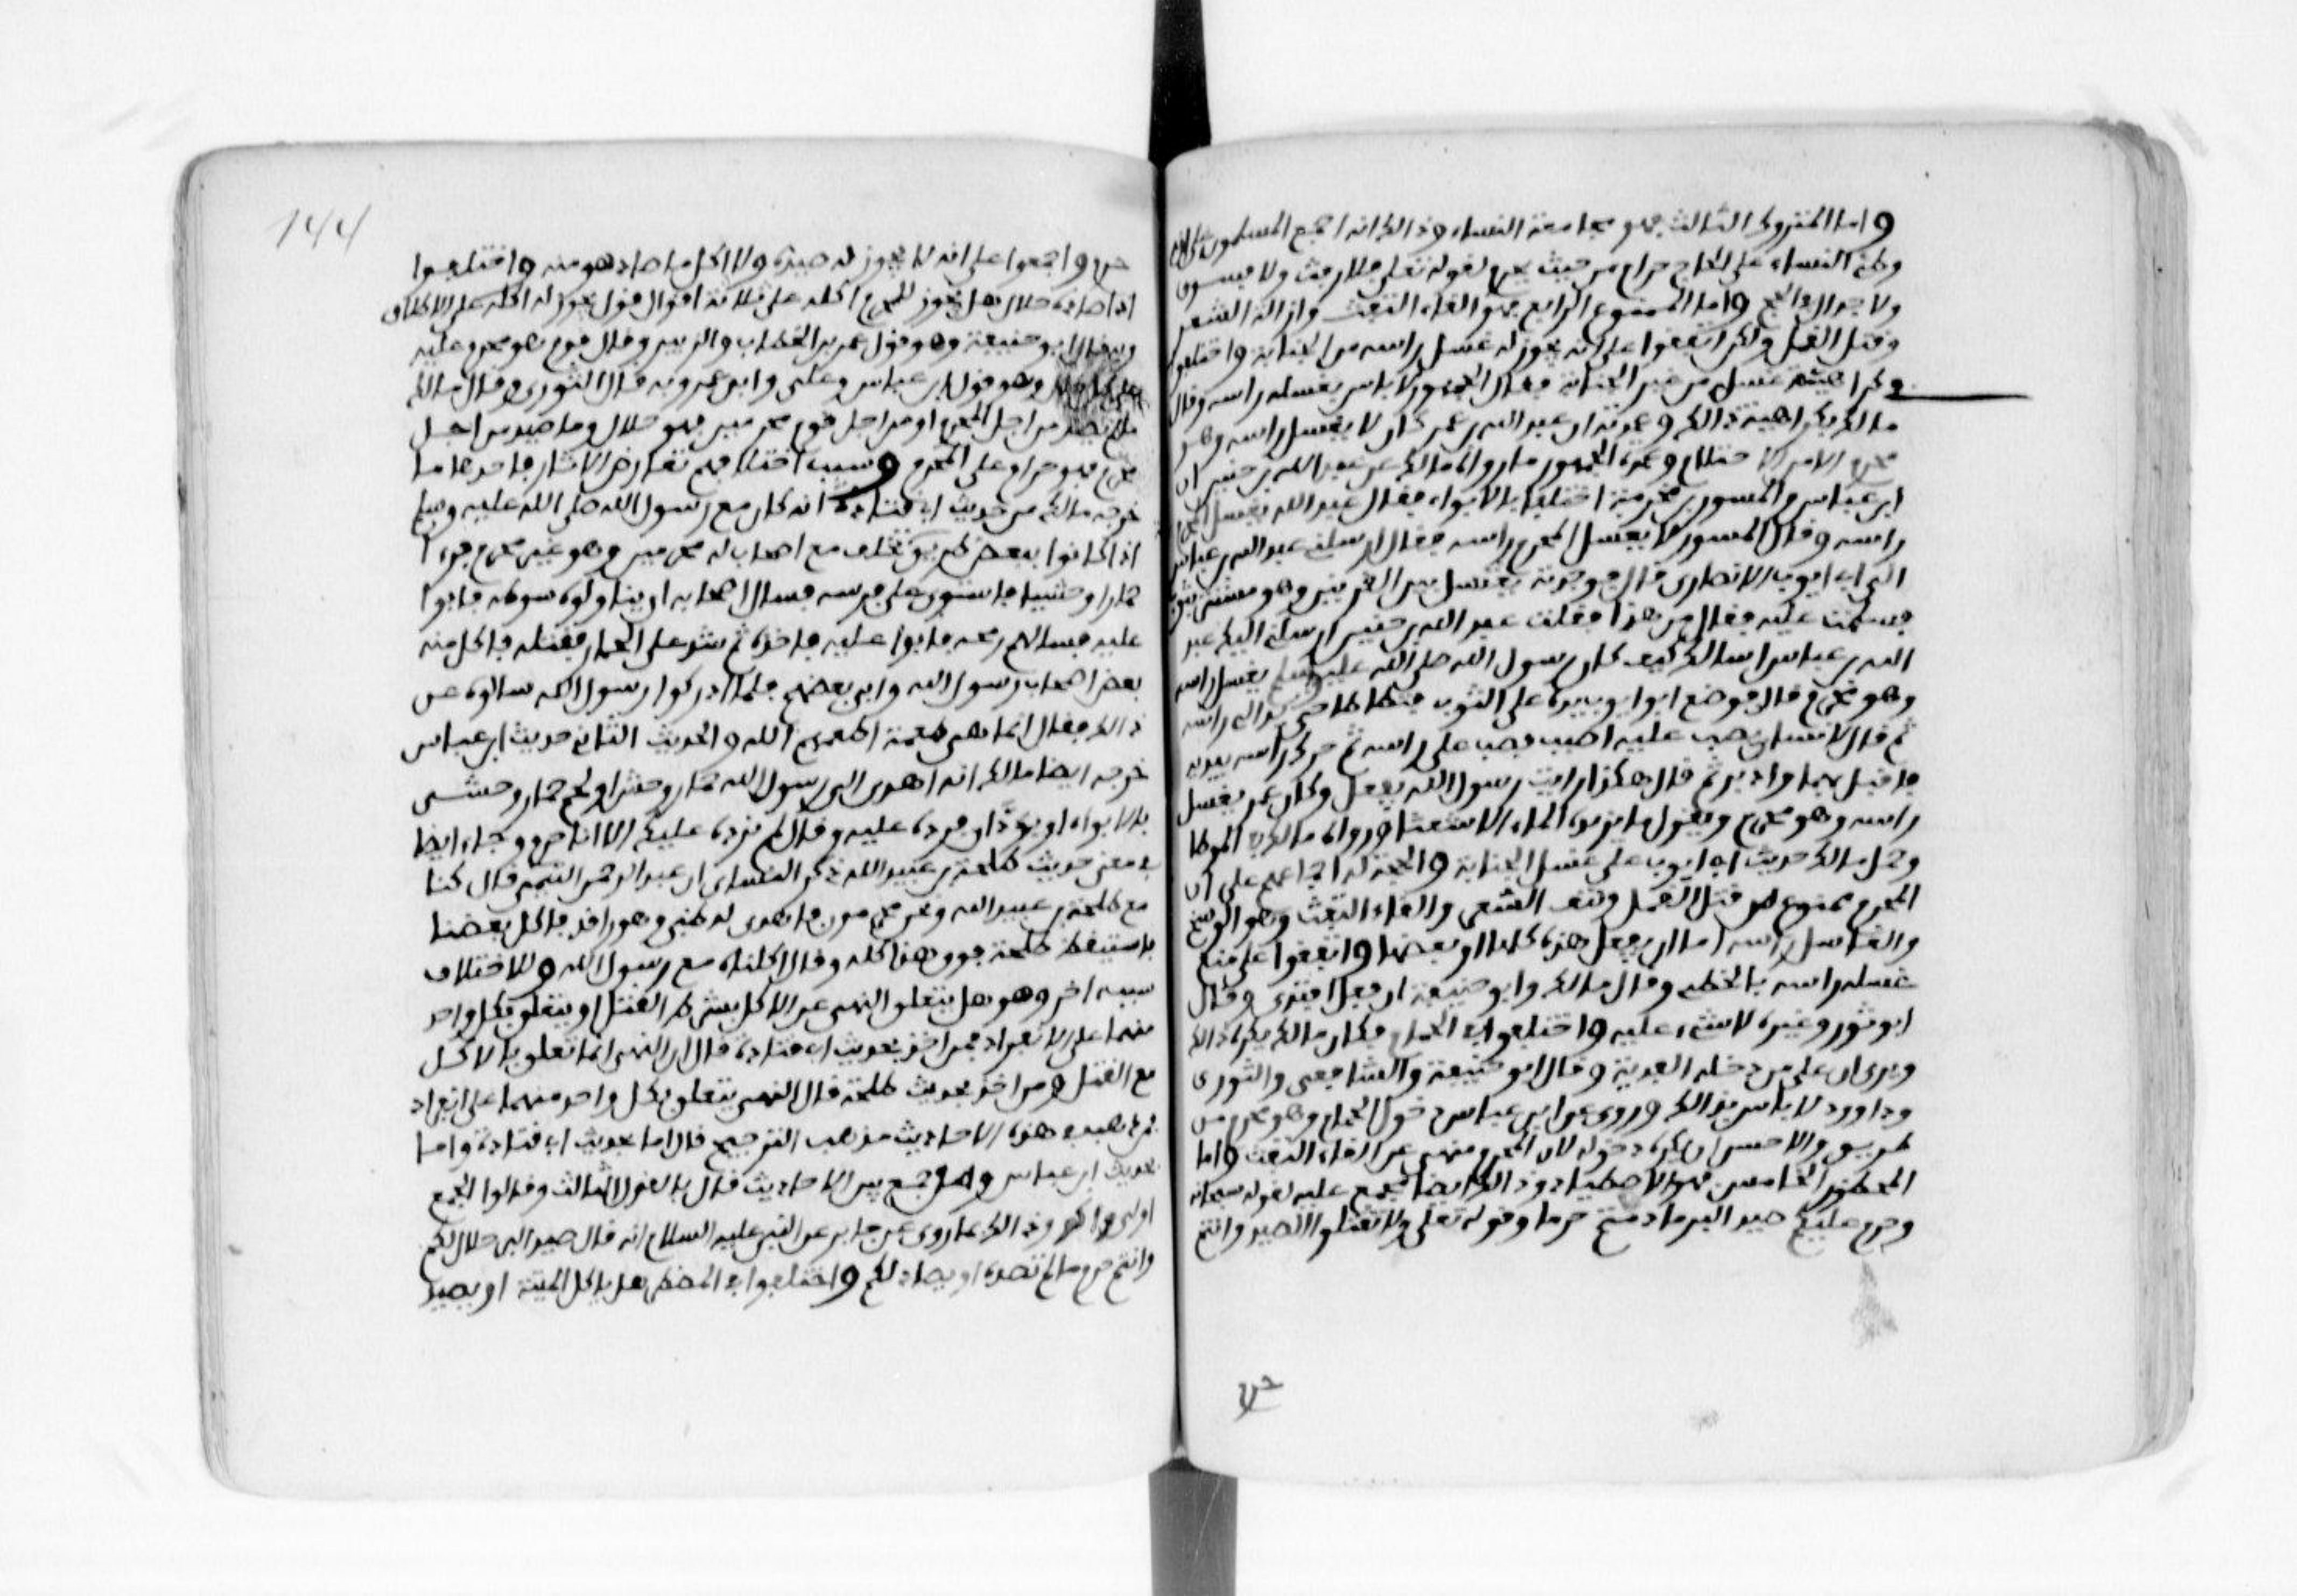 واما المتروك الثالث فهو مجامعة النساء وذالك انه اجمع المسلمون على ان
وطئ النساء على الحاج حرام من حيث يحرم لقوله تعلى فلا رفث ولا فسوق
ولا جدال في الحج واما الممنوع الرابع فهو القاء التفث وازالة الشعر
وقتل القمل ولكن اتفقوا على انه يجوز له غسل راسه من الجنابة واختلفوا
في كراهية غسله من غير الجنابة فقال الجمهور لا باس بغسله راسه وقال
مالك بكراهية ذالك وعمدته ان عبد الله بن عمر كان لا يغسل راسه وهو
محرم الا من الاحتلام وعمدة الجمهور ما رواه مالك عن عبد الله بن حنين ان
ابن عباس والمسور بن مخرمة اختلفا بالابواء فقال عبد الله يغسل المحرم
راسه وقال المسور لا يغسل المحرم راسه فقال ارسلني عبد الله بن عباس
الى ابي ايوب الانصاري قال فوجدته يغتسل بين القرنين وهو مستتر بثوب
فسلمت عليه فقال من هذا فقلت عبد الله بن حنين ارسلني اليك عبد
الله بن عباس اسالك كيف كان رسول الله صلى الله عليه وسلم يغسل راسه
وهو محرم قال فوضع ابو ايوب يده على الثوب فتطاطا حتى بدا لي راسه
ثم قال لانسان يصب عليه اصبب فصب على راسه ثم حرك راسه بيديه
فاقبل بهما وادبر ثم قال هكذا رايت رسول الله يفعل وكان عمر يغسل
راسه وهو محرم ويقول ما يزيده الماء الا شعثا ورواه مالك في الموطا
وحمل مالك حديث ابي ايوب على غسل الجنابة والحجة له اجماعهم على ان
المحرم ممنوع من قتل القمل ونتف الشعر والقاء التفث وهو الوسخ
والغاسل راسه اما ان يفعل هذه كلها او بعضها واتفقوا على منع
غسله راسه بالخطمي وقال مالك وابو حنيفة ان فعل افتدى وقال
ابو ثور وغيره لا شيء عليه واختلفوا في الحمام فكان مالك يكره ذالك
ويرى ان على من دخله الفدية وقال ابو حنيفة والشافعي والثوري
وداوود لا باس بذالك وروي عن ابن عباس دخول الحمام وهو محرم من
طريق والاحسن ان يكره دخوله لان المحرم منهي عن القاء التفث واما
المحظور الخامس فهو الاصطياد وذالك ايضا مجمع عليه لقوله سبحانه
وحرم عليكم صيد البر ما دمتم حرما وقوله تعلى ولا تقتلوا الصيد وانتم
144
حرم واجمعوا على انه لا يجوز له صيده ولا اكل ما صاد هو منه واختلفوا
اذا صاده حلال هل يجوز للمحرم اكله على ثلاثة اقوال قول يجوز له اكله على الاطلاق
وبه قال ابو حنيفة وهو قول عمر بن الخطاب والزبير وقال قوم هو محرم عليه
على كل حال وهو قول ابن عباس وعلي وابن عمر وبه قال الثوري وقال مالك
ما لم يصد من اجل المحرم او من اجل قوم محرمين فهو حلال وما صيد من اجل
محرم فهو حرام على المحرم وسبب اختلافهم تعارض الاثار فاحدها ما
خرجه مالك من حديث ابي قتادة انه كان مع رسول الله صلى الله عليه وسلم
اذا كانوا ببعض طريق تخلف مع اصحاب له محرمين وهو غير محرم فرءا
حمارا وحشيا فاستوى على فرسه فسال اصحابه ان يناولوه سوطه فابوا
عليه فسالهم رمحه فابوا عليه فاخذه ثم شد على الحمار فقتله فاكل منه
بعض اصحاب رسول الله وابى بعضهم فلما ادركوا رسول الله سالوه عن
ذالك فقال انما هي طعمة اطعمكم الله والحديث الثاني حديث ابن عباس
خرجه ايضا مالك انه اهدى الى رسول الله حمار وحش او لحم حمار وحشي
بالابواء او بودان فرده عليه وقال لم نرده عليك الا انا حرم وجاء ايضا
في معنى حديث طلحة بن عبيد الله ذكر النساي ان عبد الرحمن التيمي قال كنا
مع طلحة بن عبيد الله ونحن محرمون فاهدى له ظبي وهو راقد فاكل بعضنا
فاستيقظ طلحة فوفق من اكله وقال اكلناه مع رسول الله وللاختلاف
سبب اخر وهو هل يتعلق النهي عن الاكل بشرط القتل او يتعلق بكل واحد
منهما على الانفراد فمن اخذ بحديث ابي قتادة قال ان النهي انما تعلق بالاكل
مع القتل ومن اخذ بحديث طلحة قال النهي يتعلق بكل واحد منهما على انفراد
فمن ذهب في هذه الاحاديث مذهب الترجيح قال اما بحديث ابي قتادة واما
بحديث ابن عباس ومن جمع بين الاحاديث قال بالقول الثالث وقالوا الجمع
اولى واكدوا ذالك بما روي عن جابر عن النبي عليه السلام انه قال صيد البر حلال لكم
وانتم حرم ما لم تصدوه او يصاد لكم واختلفوا في المضطر هل ياكل الميتة او يصيد